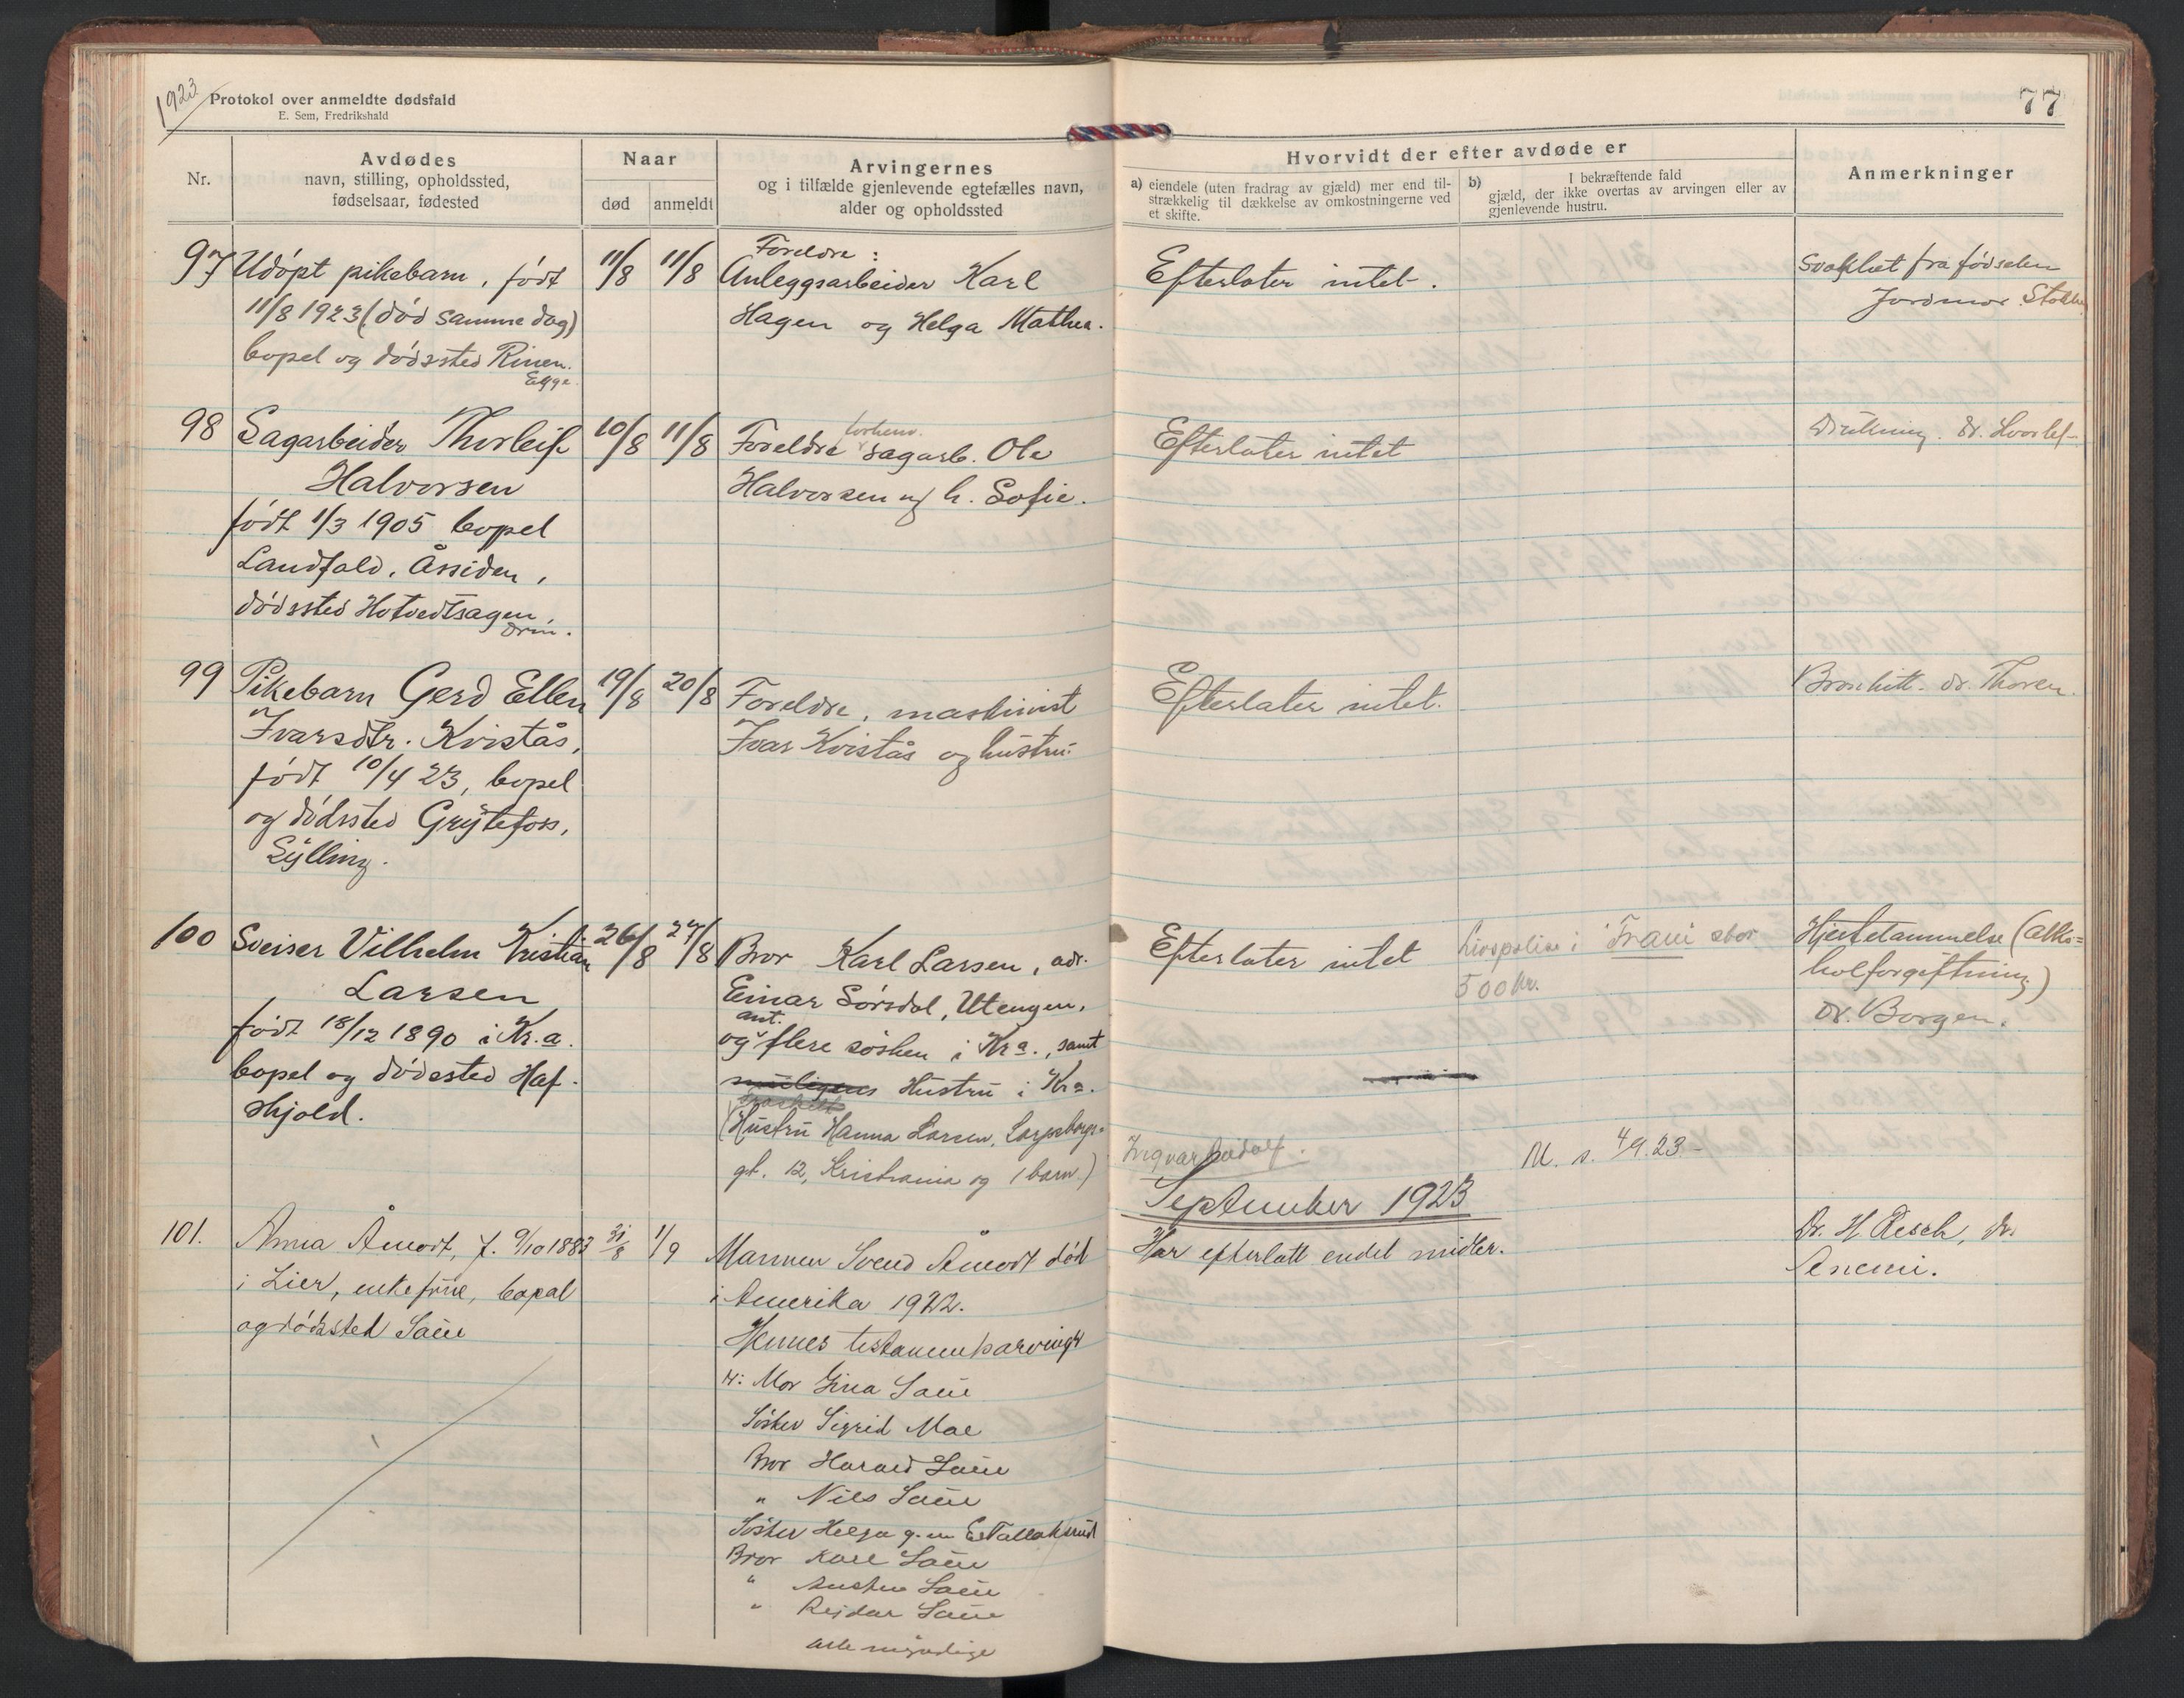 1923
Protokol over anmeldte dødsfald
E. Sem, Fredrikshald
77
Nr.
Avdødes
navn, stilling, opholdssted,
fødselsaar, fødested
Naar
død
anmeldt
Arvingernes
og i tilfælde gjenlevende egtefælles navn,
alder og opholdssted
Hvorvidt der efter avdøde er
a) eiendele (uten fradrag av gjæld) mer end til-
strækkelig til dækkelse av omkostningerne ved
et skifte.
b) I bekræftende fald
gjæld, der ikke overtas av arvingen eller av
gjenlevende hustru.
Anmerkninger
97
Udöpt pikebarn, født
11/8 1923 (død samme dag)
bopel og dødssted
Egge.
11/8
11/8
Foreldre:
Anleggsarbeider Karl
Hagen og Helga Mathea.
Efterlater intet.
Svakhet fra fødselen
Jordmor
98
Sagarbeider Thorleif
Halvorsen
født 1/3 1905 bopel
Landfald, Åssiden,
dødssted Hotvedtsagen,
Drm.
10/8
11/8
forhenv.
Foreldre sagarb. Ole
Halvorsen og h. Sofie.
Efterlater intet
Drukning. Dr.
99
Pikebarn Gerd Ellen
Ivarsdtr. Kvistås,
født 10/4 23, bopel
og dødssted Grytefoss,
Sylling.
19/8
20/8
Foreldre, maskinist
Ivar Kvistås og hustru
Efterlater intet.
Bronkitt. Dr. Thoren.
100
Sveiser Vilhelm Kristian
Larsen
født 18/12 1890 i Kr.a.
bopel og dødssted Haf-
skjold.
26/8
27/8
Bror Karl Larsen, adr.
Einar Sørsdal, Utengen,
ant.
og flere søsken i Kra., samt
muligens Hustru i Kra.
(Hustru Hanna Larsen, Sarpsborg-
gt. 12, Kristiania og 1 barn)
Efterlater intet
Livspolise i Fram stor
500 kr.
Hjertelammelse (alko-
holforgiftning)
Dr. Borgen.
Ingvar
M. s. 4/9.23
September 1923
101.
Anna Åmodt, f. 9/10 1883
i Lier, enkefrue, bopal
og dødssted Saue
31/8
1/9
Mannen Svend Åmodt død
i Amerika 1922.
Hennes testamentarvinger
er: Mor Gina Saue
Søster Sigrid Moe
Bror Harald Saue
" Nils Saue
Søster Helga g. m. E. Tallaksrud
Bror Karl Saue
" Saue
" Reidar Saue
alle myndige
Har efterlatt endel midler.
Dr. H. Resch, Dr.
Anemi.